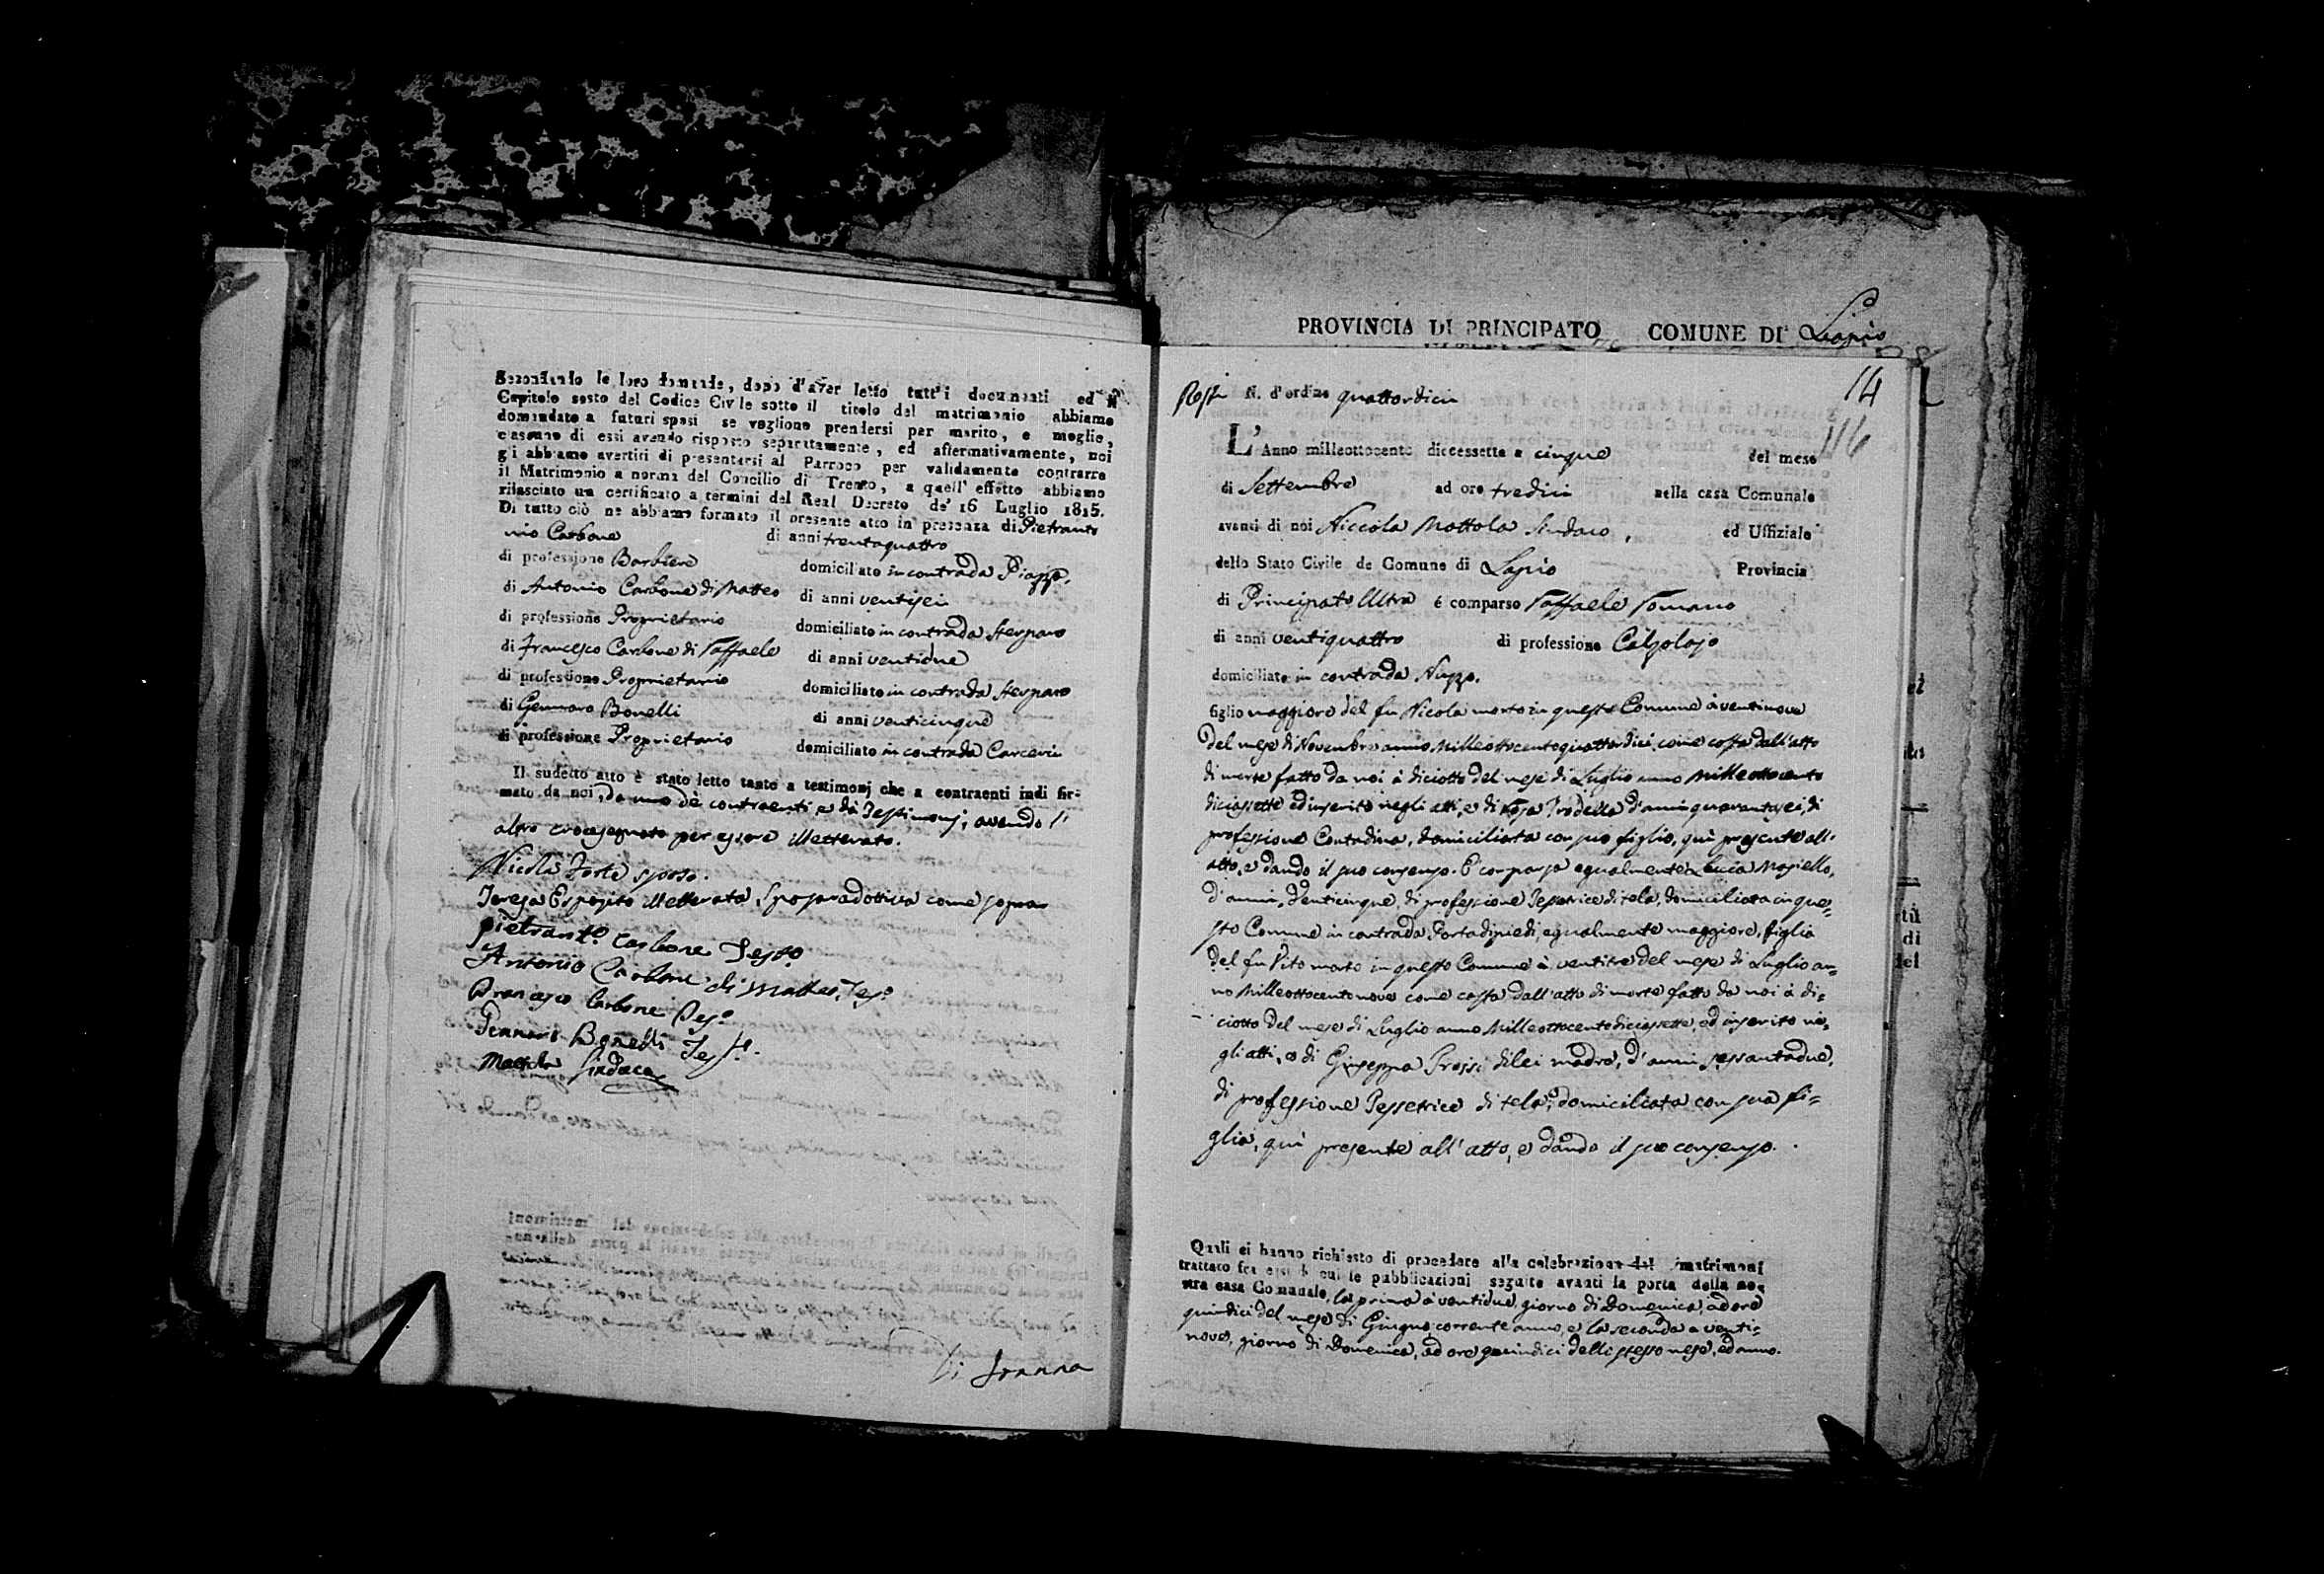 Secondando le loro domande, dopo d'aver letto tutt'i documenti ed il
Capitolo sesto del Codice Civile sotto il titolo del matrimonio abbiamo
domandato a futuri sposi se vogliono prendersi per marito, e moglie,
ciascuno di essi avendo risposto separatamente, ed affermativamente, noi
gli abbiamo avertiti di presentarsi al Parroco per validamente contrarre
il Matrimonio a norma del Concilio di Trento, a quell' effetto abbiamo
rilasciato un certificato a termini del Real Decreto de' 16 Luglio 1815.
Di tutto ciò ne abbiamo formato il presente atto in presenza di Pietranto
nio Carbone di anni trentaquattro
di professione Barbiere domiciliato in contrada Piazza.
di Antonio Carbone di Matteo di anni ventisei
di professione Proprietario domiciliato in contrada Sterparo
di Francesco Carbone di Raffaele di anni ventidue
di professione Proprietario domiciliato in contrada Sterparo
di Gennaro Bonelli di anni venticinque
di professione Proprietario domiciliato in contrada Carceri
Il sudetto atto è stato letto tanto a testimonj che a contraenti indi fir-
mato da noi, da uno dè contraenti e dà Testimonj, avendo l'
altro crocesegnato per essere illetterato.
Nicola Forte sposo.
Teresa Esposito illetterata, Sposa adottiva come sopra
Pietrant.o Carbone Test.o
Antonio Carbone di Matteo, Tes.o
Francesco Carbone Tes.o
Gennaro Bonelli Test.o
Mottola Sindaco
Di Joanna
PROVINCIA DI PRINCIPATO COMUNE DI Lapio
14
116
N. d'ordine quattordici
L'Anno milleottocento diecessette a cinque del mese
di Settembre ad ore tredici nella casa Comunale
avanti di noi Niccola Mottola Sindaco, ed Uffiziale
dello Stato Civile de Comune di Lapio Provincia
di Principato Ultra è comparso Raffaele Romano
di anni ventiquattro di professione Calzolajo
domiciliato in contrada Nuzzo.
figlio maggiore del fu Nicola morto in questo Comune à ventinove
del mese di Novembre anno Milleottocentoquattordici, come costa dall'atto
di morte fatto da noi à diciotto del mese di Luglio anno Milleottocento
diciassette ed inserito negli atti, e di Rosa Trodella d'anni quarantasei, di
professione Contadina, domiciliata con suo figlio, quì presente all'
atto, e dando il suo consenso. È comparsa egualmente Lucia Masiello,
d'anni, venticinque, di professione Tessetrice di tela, domiciliata in que-
sto Comune in contrada Portadipiedi, egualmente maggiore, figlia
del fu Vito morto in questo Comune à ventitre del mese di Luglio an-
no Milleottocentonove come costa dall'atto di morte fatto da noi à di-
ciotto del mese di Luglio anno Milleottocentodiciassette, ed inserito ne-
gli atti, e di Giuseppa Grossi di lei madre, d'anni sessantadue,
di professione Tessetrice di tela, domiciliata con sua fi-
glia, quì presente all'atto, e dando il suo consenso.
Quali ci hanno richiesto di procedere alla celebrazione del matrimoni
trattato fra essi di cui le pubblicazioni seguite avanti la porta della no-
stra casa Comunale, la prima à ventidue, giorno di Domenica, ad ore
quindici del mese di Giugno corrente anno, e la seconda a venti-
nove, giorno di Domenica, ad ore quindici dello stesso mese, ed anno.